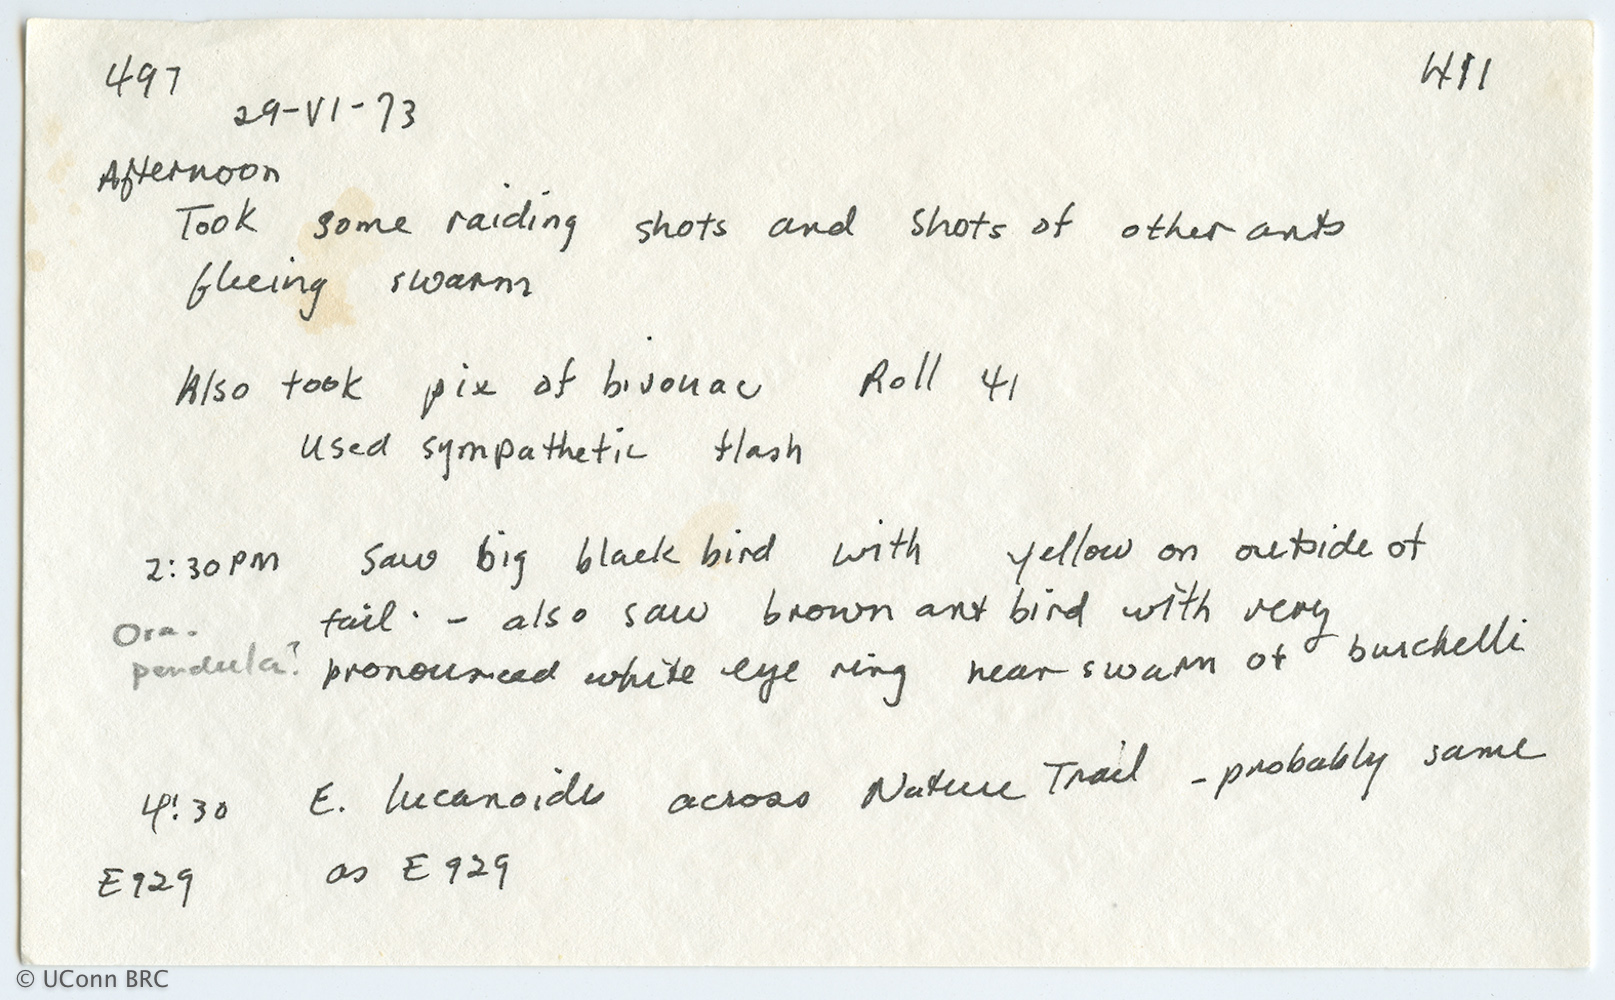 497 411
29-VI-73
Afternoon
Took some raiding shots and shots of other ants
fleeing swarm
Also took pix of bivouac Roll 41
Used sympathetic flash
2:30 PM Saw big black bird with yellow on outside of
tail. - also saw brown ant bird with very
Oro-
pendula? pronounced white eye ring near swarm of burchelli
4:30 E. lucanoides across Nature Trail - probably same
E929 as E929
© UConn BRC